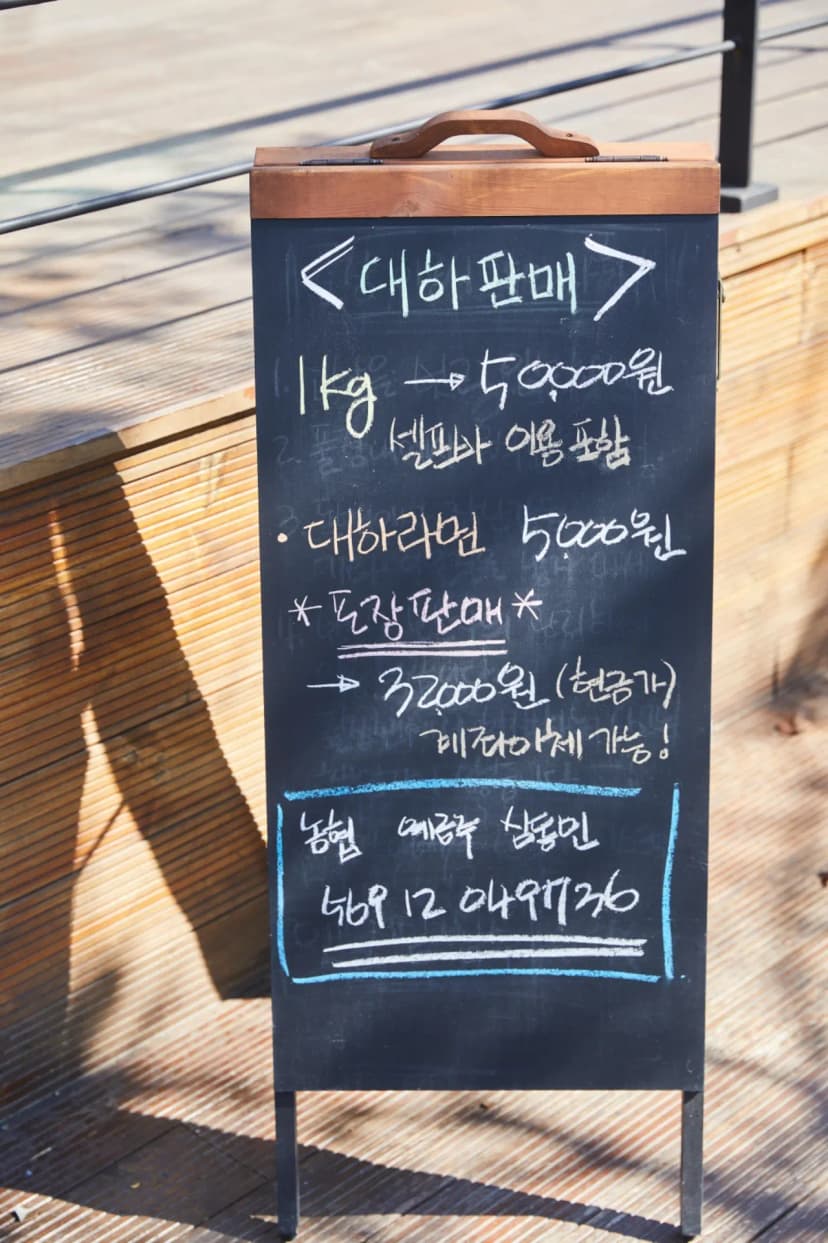 <대하판매>
1kg → 50,000원
셀프바 이용 포함
• 대하라면 5,000원
*포장판매*
→ 32,000원 (현금가)
계좌이체 가능!
농협 예금주
569 12 049736